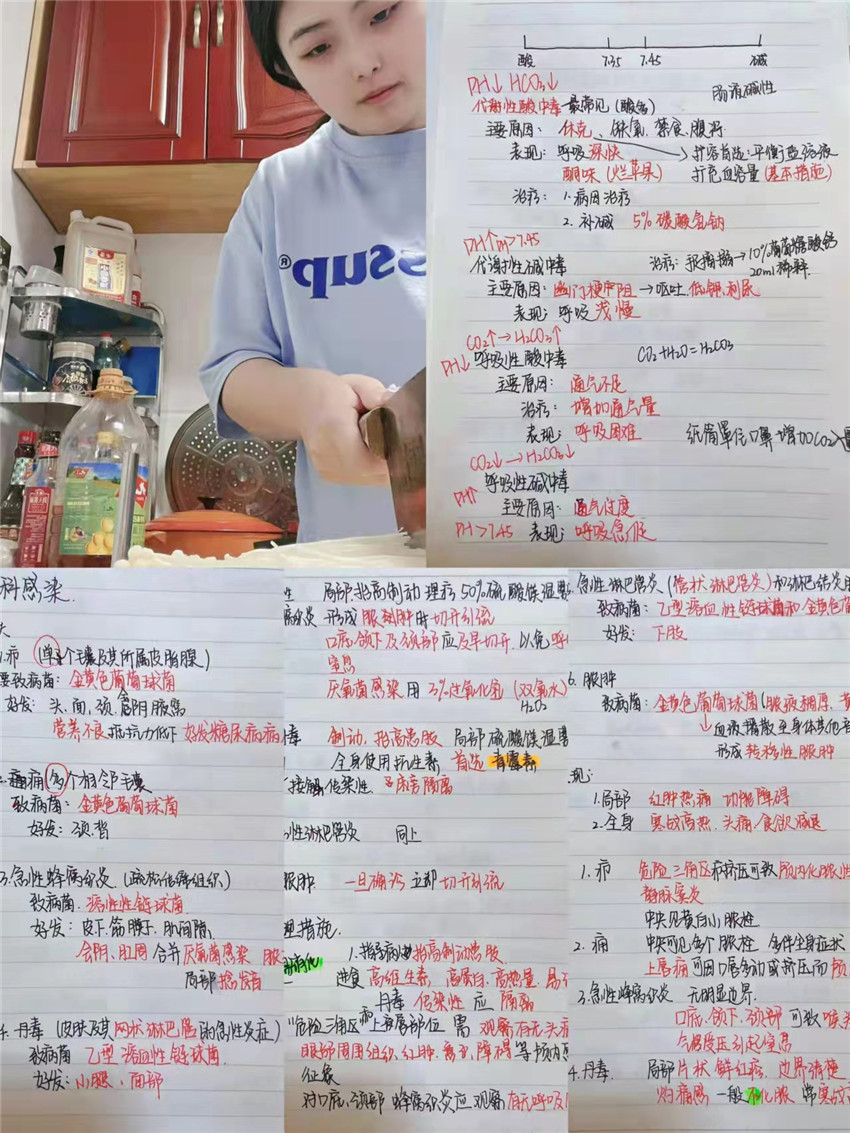 ssup®
酸 7.35 7.45 碱
PH↓ HCO₃↓ 肠液碱性
代谢性酸中毒 最常见(酸多)
主要原因: 休克、缺氧、禁食、腹泻
表现: 呼吸深快 → 扩容首选:平衡盐溶液
酮味(烂苹果) 扩充血容量(基本措施)
治疗: 1.病因治疗
2.补碱 5%碳酸氢钠
PH↑ PH>7.45
代谢性碱中毒 治疗: →10%葡萄糖酸钙
20ml稀释
主要原因: 幽门梗阻→呕吐、低钾、利尿
表现: 呼吸浅慢
CO₂↑→H₂CO₃↑
PH↓ 呼吸性酸中毒 CO₂+H₂O=H₂CO₃
主要原因: 通气不足
治疗: 增加通气量
表现: 呼吸困难 纸筒罩住口鼻 增加CO₂入量
CO₂↓→H₂CO₃↓
PH↑ 呼吸性碱中毒
主要原因: 通气过度
PH>7.45 表现: 呼吸急促
科感染.
1.疖 (单个毛囊及其所属皮脂腺)
要致病菌: 金黄色葡萄球菌
好发: 头、面、颈、会阴、腹
营养不良 抵抗力低下 好发糖尿病病
2.痈 多个相邻毛囊
致病菌: 金黄色葡萄球菌
好发: 颈.背
3.急性蜂窝织炎 (疏松结缔组织)
致病菌: 溶血性链球菌
好发: 皮下、筋膜下、肌间隙、
会阴、肛周 合并厌氧菌感染
局部捻发音
4.丹毒 (皮肤及其网状淋巴管的急性炎症)
致病菌 乙型溶血性链球菌
好发: 小腿、面部
局部:抬高制动 理疗 50%硫酸镁湿
窝织炎 形成脓肿时切开引流
口底、颌下及颈部应及早切开.以免呼
窒息
厌氧菌感染用3%过氧化氢 (双氧水)
H₂O₂
丹毒 制动、抬高患肢 局部硫酸镁湿
全身使用抗生素 首选 青霉素
接触传染性 床旁隔离
性淋巴管炎 同上
脓肿 一旦确诊 立即切开引流
措施.
抬高制动患肢
进食 高维生素 高蛋白.高热量.易
丹毒 传染性 应 隔离
"危险三角区"和上唇部位 需 观察有无头痛
眼部周围组织、红肿、障碍等颅内
征象
对口底、颈部 蜂窝织炎应观察有无呼吸
急性淋巴管炎 (管状淋巴管炎)和淋巴结炎
致病菌: 乙型溶血性链球菌和金黄色葡
好发: 下肢
6.脓肿
致病菌: 金黄色葡萄球菌(脓液稠厚、黄
↓血液播散至身体其他
形成转移性脓肿
现:
1.局部 红肿热痛 功能障碍
2.全身 寒战高热、头痛、食欲减退
1.疖 危险三角区疖挤压可致颅内化脓性
静脉窦炎
中央见黄白小脓栓
2.痈 中央可见多个脓栓 多伴全身症状
上唇痈可因口唇多动或挤压而颅
3.急性蜂窝织炎 无明显边界.
口底、颌下、颈部可致喉
气管受压引起窒息
4.丹毒 局部片状鲜红疹、边界清楚
灼痛感 一般不化脓 常寒战高